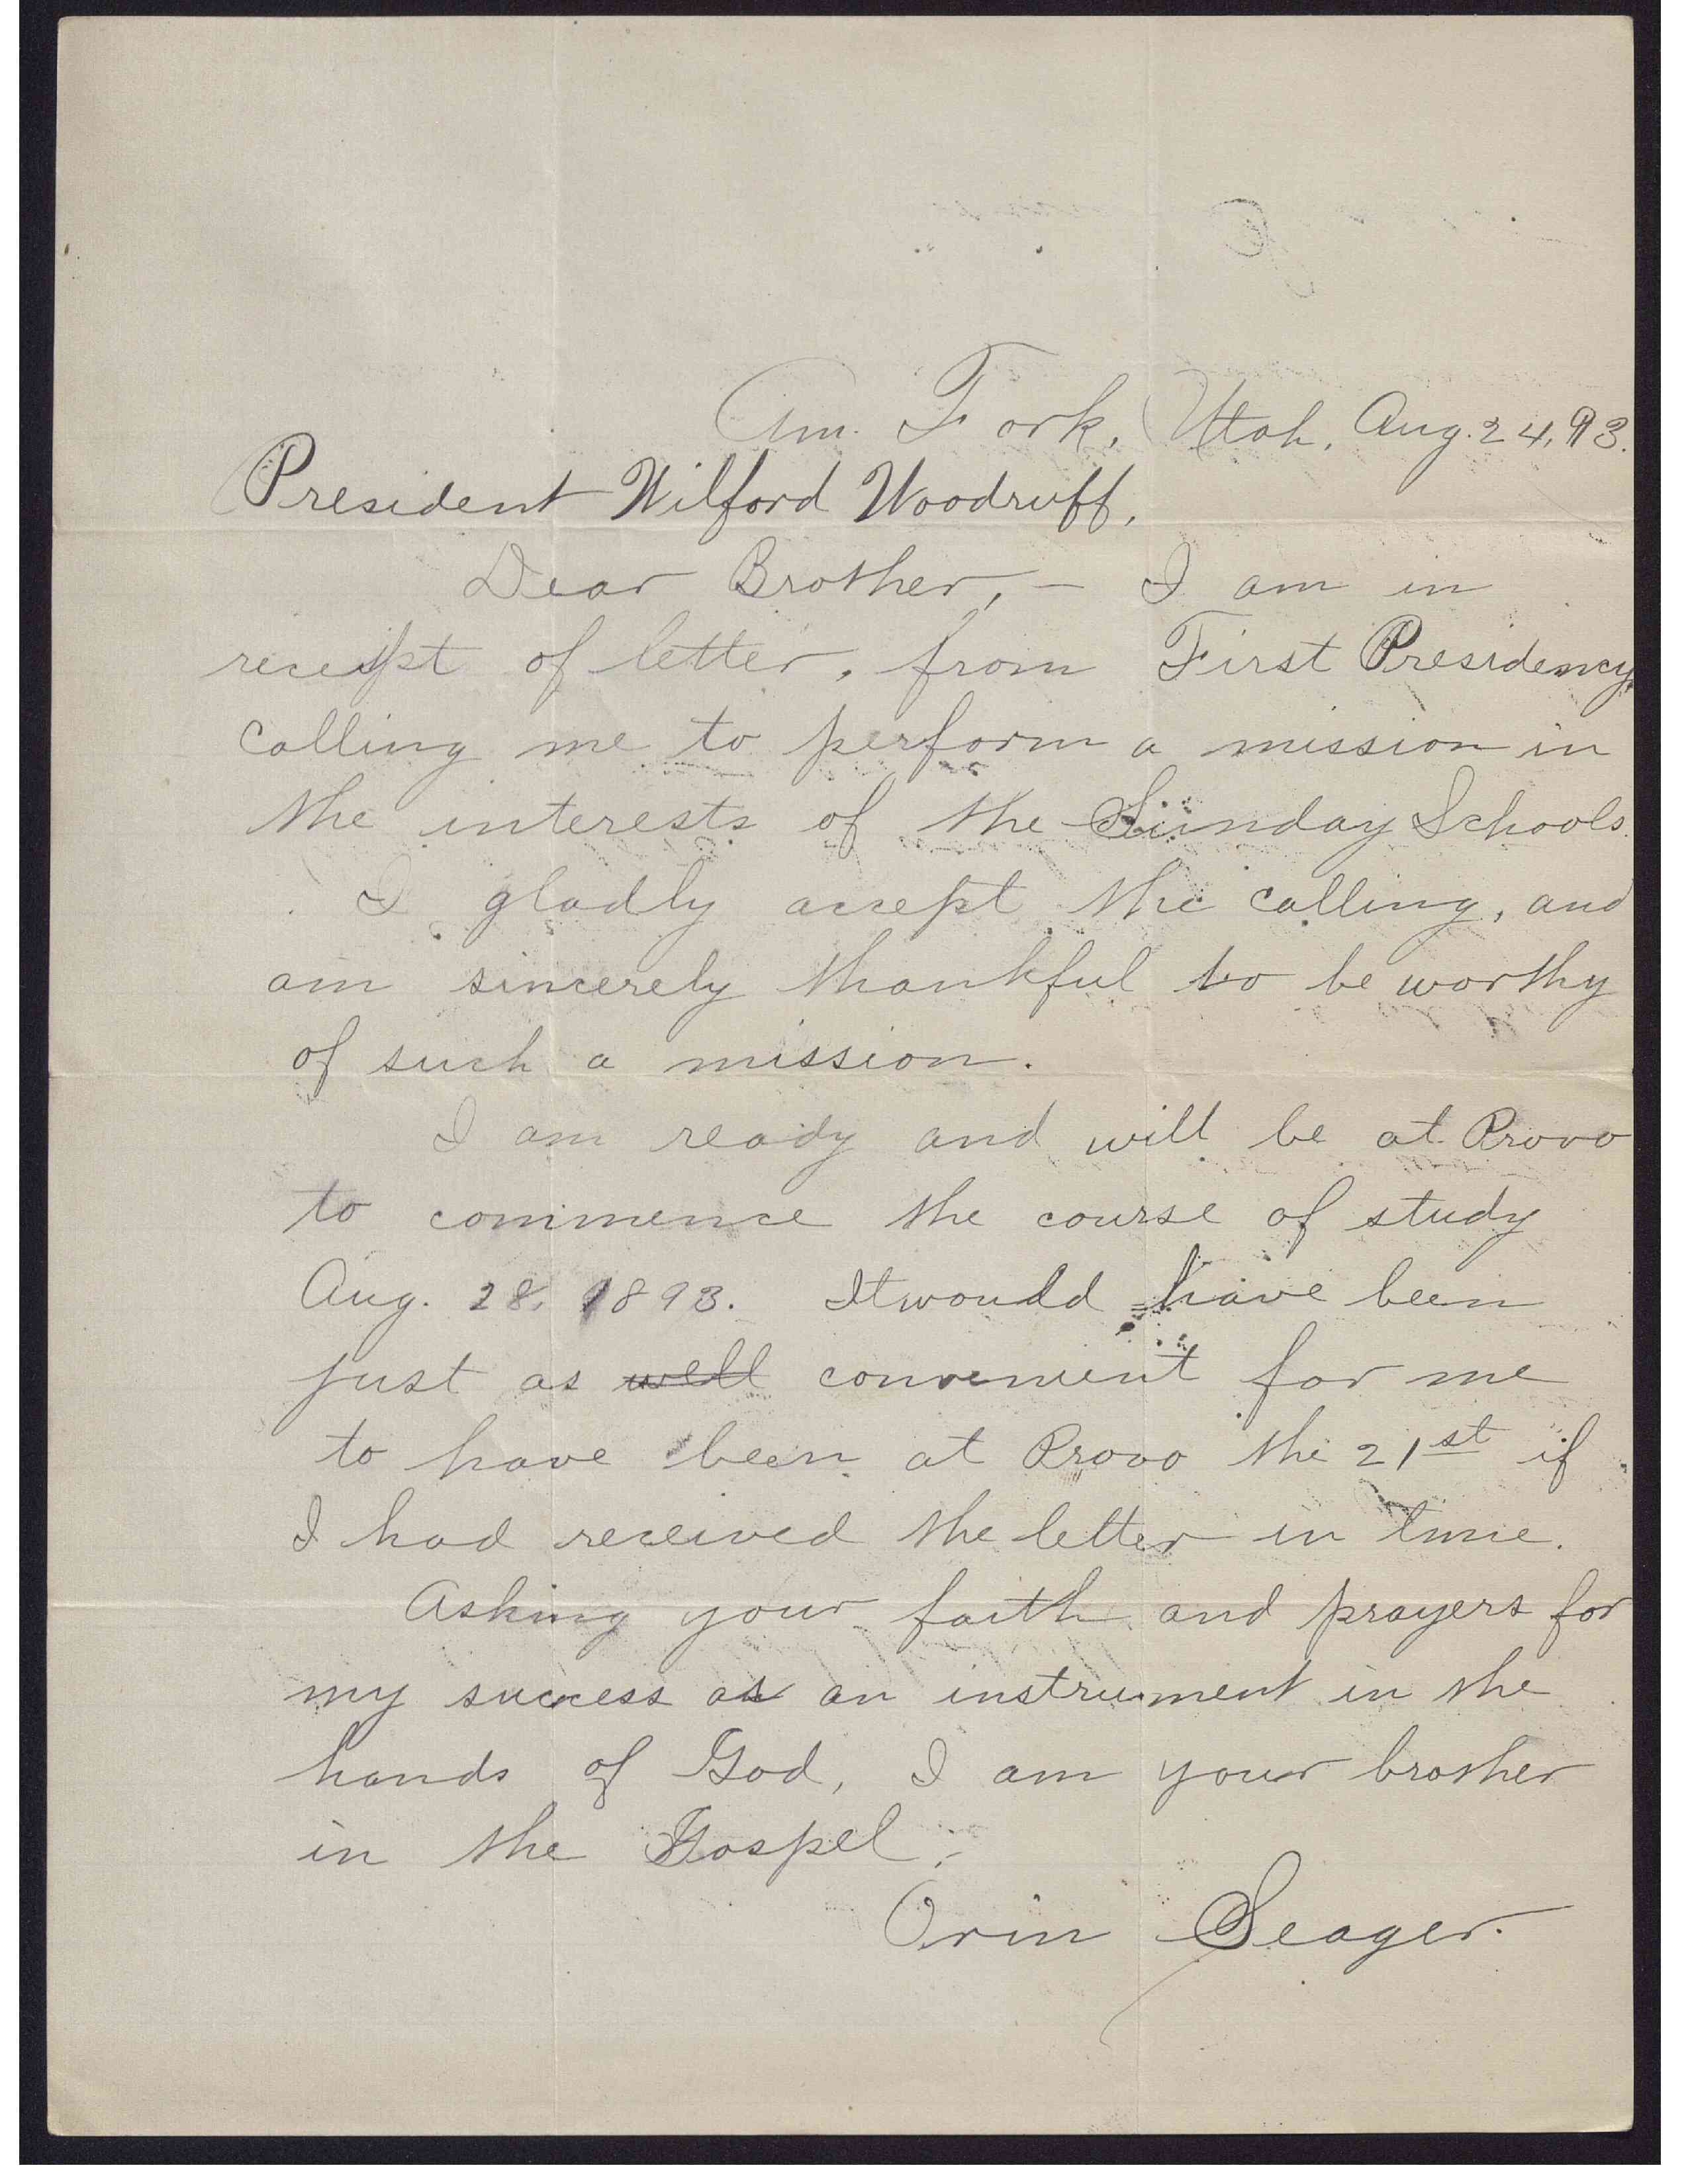 Am. Fork, Utah, Aug. 24, 93.
President Wilford Woodruff,
Dear Brother,— I am in
receipt of letter, from First Presidency,
calling me to perform a mission in
the interests of the Sunday Schools.
I gladly accept the calling, and
am sincerely thankful to be worthy
of such a mission.
I am ready and will be at Provo
to commence the course of study
Aug. 28, 1893. It would have been
just as well convenient for me
to have been at Provo the 21st if
I had received the letter in time.
Asking your faith and prayers for
my success as an instrument in the
hands of God, I am your brother
in the Gospel,
Orin Seager.